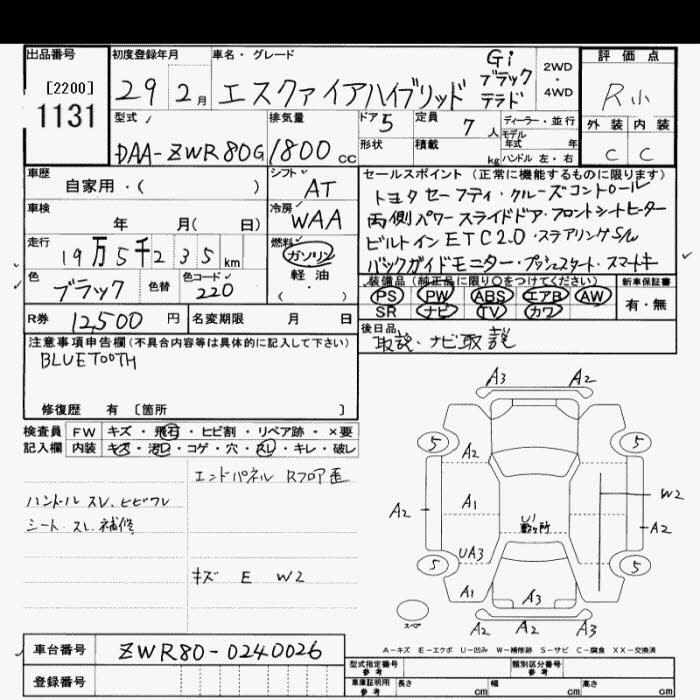 出品番号
[2200]
1131
初度登録年月
29 2月
車名・グレード
エスクァイアハイブリッド
Gi
ブラック
テラド
2WD
・
4WD
評価点
R小
外装 内装
C C
型式
DAA-ZWR80G
排気量
1800 cc
ドア
5
形状
定員
7人
積載
kg
ディーラー・並行
モデル
年式 年
ハンドル 左・右
車歴
自家用・( )
シフト
AT
冷房
WAA
車検
年 月( 日)
走行
19万5千235km
燃料
ガソリン
軽油
( ・ )
色
ブラック
色替
色コード
220
R券
12,500円
名変期限 月 日
セールスポイント(正常に機能するものに限ります)
トヨタセーフティ・クルーズコントロール
両側パワースライドドア・フロントシートヒーター
ビルトインETC2.0・ステアリングS/W
バックガイドモニター・プッシュスタート・スマートキー
装備品(純正品に限り○をつけてください)
PS PW ABS エアB AW
SR ナビ TV カワ
新車保証書
有・無
後日品
取説・ナビ取説
注意事項申告欄(不具合内容等は具体的に記入して下さい)
BLUETOOTH
修復歴 有 [箇所 ]
検査員
記入欄
FW キズ・飛石・ヒビ割・リペア跡・×要
内装 キズ・汚レ・コゲ・穴・スレ・キレ・破レ
エンドパネル Rフロア歪
ハンドル スレ、ヒビワレ
シート スレ 補修
キズ E W2
A3 A2
5 5
A2
A1
W2
A2
U1
数ヶ所
A2
UA3
5 5
A1
A3
スペア
A2 A2 A3
A-キズ E-エクボ U-凹み W-補修跡 S-サビ C-腐食 XX-交換済
車台番号
ZWR80-0240026
登録番号
型式指定番号
参考
類別区分番号
参考
車庫証明用
参考
長さ cm 幅 cm 高さ cm